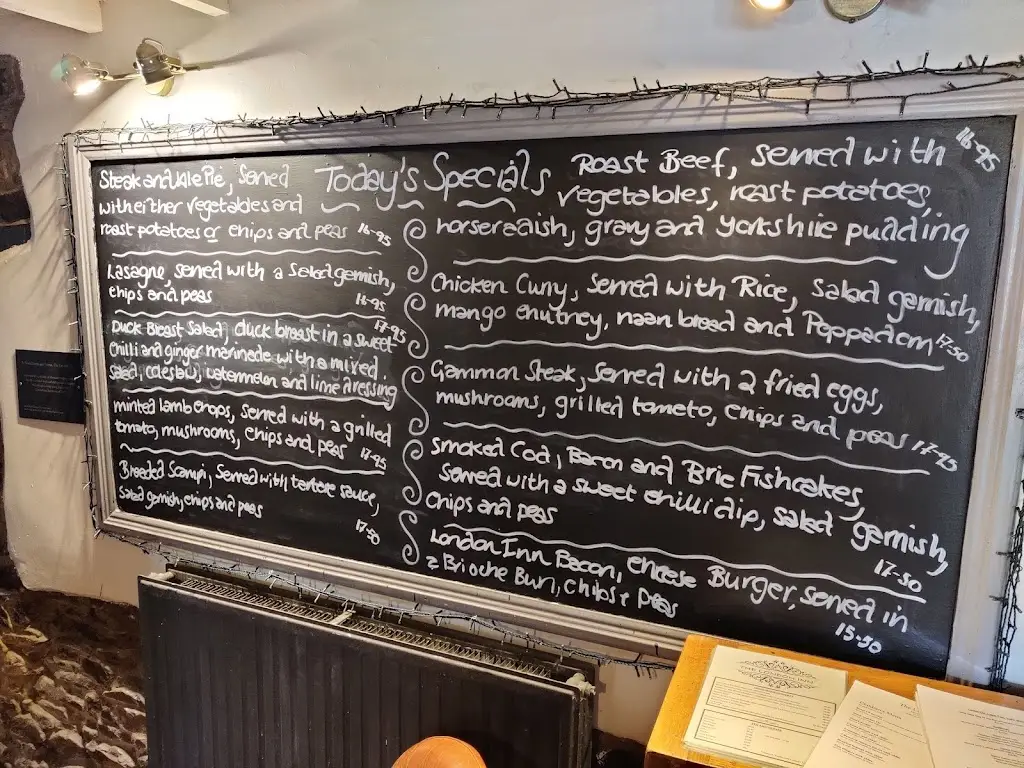 Today's Specials
Steak and Ale Pie, Served
with either vegetables and
roast potatoes or chips and peas 16-95
Lasagne, served with a Salad garnish,
chips and peas
16-95
Duck Breast Salad, duck breast in a sweet 17-95
Chilli and ginger marinade with a mixed
Salad, coleslaw, watermelon and lime dressing
minted lamb chops, served with a grilled
tomato, mushrooms, chips and peas 17-95
Breaded Scampi, Served with tartare sauce,
Salad garnish, chips and peas
17-50
Roast Beef, served with 16-95
vegetables, roast potatoes,
horseradish, gravy and Yorkshire pudding
Chicken Curry, Served with Rice, Salad garnish,
mango chutney, naan bread and Poppadom 17-50
Gammon Steak, Served with 2 fried eggs,
mushrooms, grilled tomato, chips and peas 17-95
Smoked Cod, Bacon and Brie Fishcakes,
Served with a sweet chilli dip, salad garnish,
Chips and peas
17-50
London Inn Bacon, cheese Burger, served in
a Brioche Bun, Chips + Peas
15-50